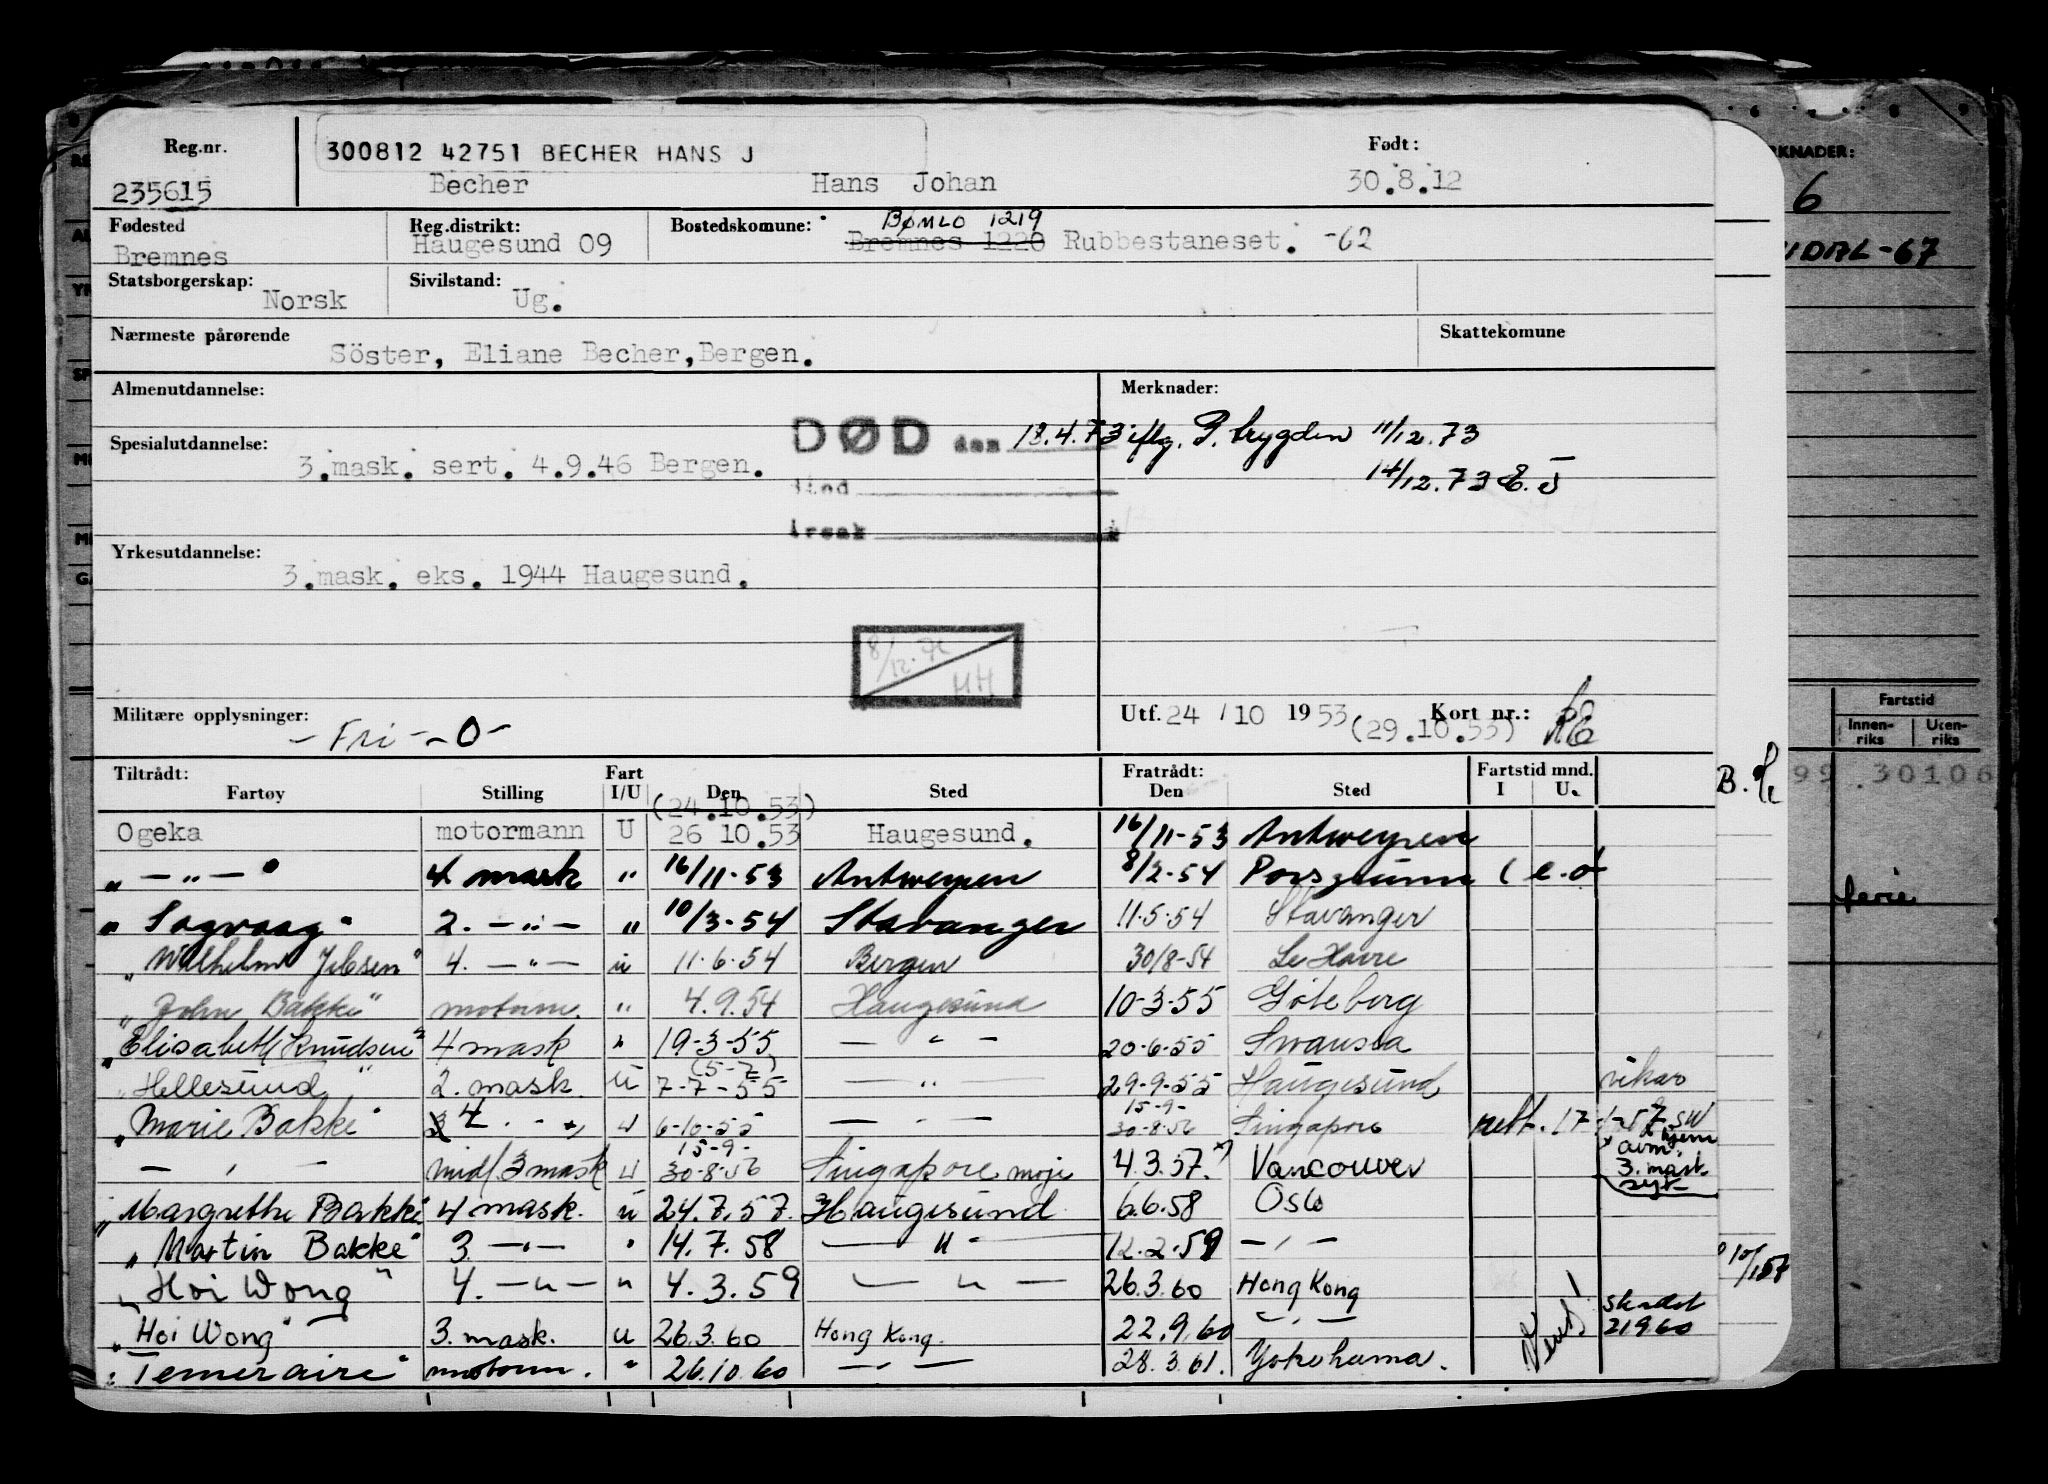 Reg.nr. 300812 42751 BECHER HANS J Født:
235615 Becher Hans Johan 30.8.12
Fødested Reg.distrikt: Bostedskomune: BØMLO 1219
Bremnes Haugesund 09 Bremnes 1220 Rubbestaneset. -62
Statsborgerskap: Norsk Sivilstand: Ug.
Nærmeste pårørende Skattekomune
Söster, Eliane Becher, Bergen.
Almenutdannelse: Merknader:
DØD den 18.4.73 iflg. P. trygden 11/12.73
Spesialutdannelse:
3.mask. sert. 4.9.46 Bergen.
14/12.73 E.J
sted
årsak
Yrkesutdannelse:
3.mask. eks. 1944 Haugesund.
8/12.71
HH
Militære opplysninger: - Fri - -0-
Utf. 24 / 10 1953 (29.10.53) Kort nr.:
Tiltrådt: Fart Fratrådt: Fartstid mnd.
Fartøy Stilling I/U Den Sted Den Sted I U.
(24.10.53)
Ogeka motormann U 26 10.53 Haugesund. 16/11-53 Antwerpen
" — " — " 4 mask " 16/11-53 Antwerpen 8/2-54 Porsgrunn
" Sagvaag " 2. — " — " 10/3-54 Stavanger 11.5.54 Stavanger
" Wilhelm Jebsen " 4. — " — u 11.6.54 Bergen 30/8-54 Le Havre
" John Bakke " motorm. " 4.9.54 Haugesund 10-3-55 Göteborg
" Elisabeth Knudsen " 4 mask " 19-3-55 — " — 20-6-55 Swansea
(5-7)
" Hellesund " 2. mask. U 7-7-55 — " — 29-9-55 Haugesund vikar
15-9-
" Marie Bakke " 3 4 . - " - u 6-10-55 — " — 30-8-56 Singapore rett. 17-1-57. SW
15-9-
— " — midl 3 mask u 30-8-56 Singapore 4.3.57. x) Vancouver x avm. hjem 3. mask. syk
" Margrethe Bakke " 4 mask. u 24.7.57. Haugesund 6.6.58 Oslo
" Martin Bakke " 3. — " — " 14.7.58 — " — 12.2.59 — " —
" Hoi Wong " 4. — " — " 4.3.59 — " — 26.3.60 Hong Kong
" Hoi Wong " 3. mask. u 26.3.60 Hong Kong. 22.9.60 — " — skadet 21960
" Temeraire " motorm. " 26.10.60 — " — 28.3.61. Yokohama.
KNADER:
6
-67
Fartstid
Innen-riks Uten-riks
99 30106
B.
ferie
10/1 57